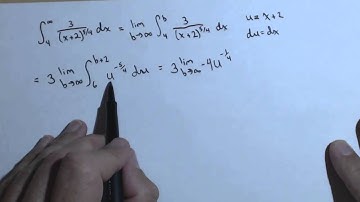 ∫₄^∞ 3/(x+2)^{5/4} dx = lim_{b→∞} ∫₄^b 3/(x+2)^{5/4} dx   u = x+2
du = dx
= 3 lim_{b→∞} ∫₆^{b+2} u^{-5/4} du = 3 lim_{b→∞} -4u^{-1/4}